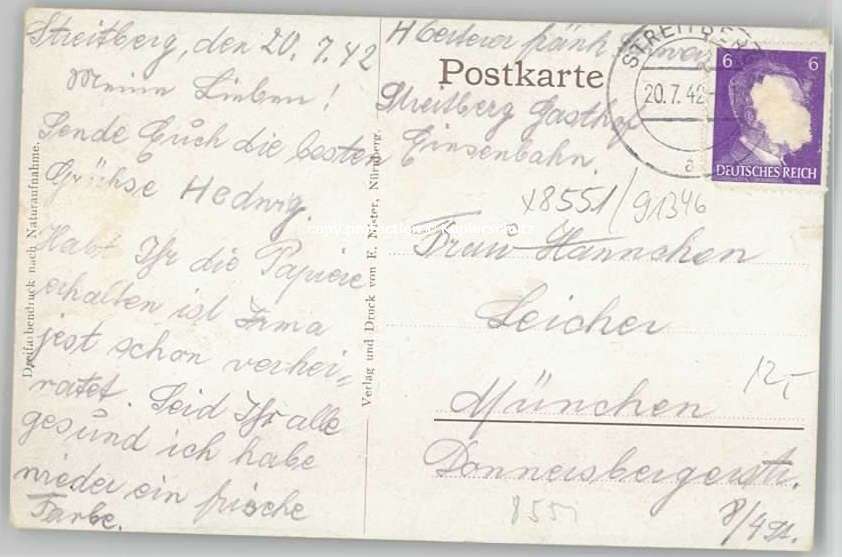 Streitberg, den 20.7.42
Meine Lieben!
Sende Euch die besten
Grühse Hedwig.
Habt Ihr die Papiere
erhalten ist Irma
jest schon verhei-
ratet. Seid Ihr alle
gesund ich habe
wieder ein frische
Farbe.
Dreifarbendruck nach Naturaufnahme.
Verlag und Druck von E. Nister, Nürnberg.
fränk. Schweiz
Postkarte
Streitberg Gasthof
Einsenbahn.
STREITBERG
20.7.42
a
6 6
DEUTSCHES REICH
x8551/91346
Frau Hannchen
Leicher
12,-
München
Donnersbergerstr.
8/4 St.
8551